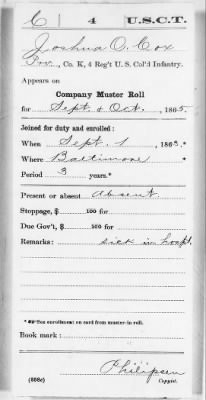 C | 4 | U.S.C.T.
Joshua O. Cox
Pvt., Co. K, 4 Reg't U. S. Col'd Infantry.
Appears on
Company Muster Roll
for Sept. & Oct., 1865.
Joined for duty and enrolled:
When Sept. 1, 1863.*
Where Baltimore
Period 3 years.*
Present or absent Absent.
Stoppage, $ 100 for
Due Gov't, $ 100 for
Remarks: sick in hospt.
* See enrollment on card from muster-in roll.
Book mark:
Philipsen
(858c) Copyist.